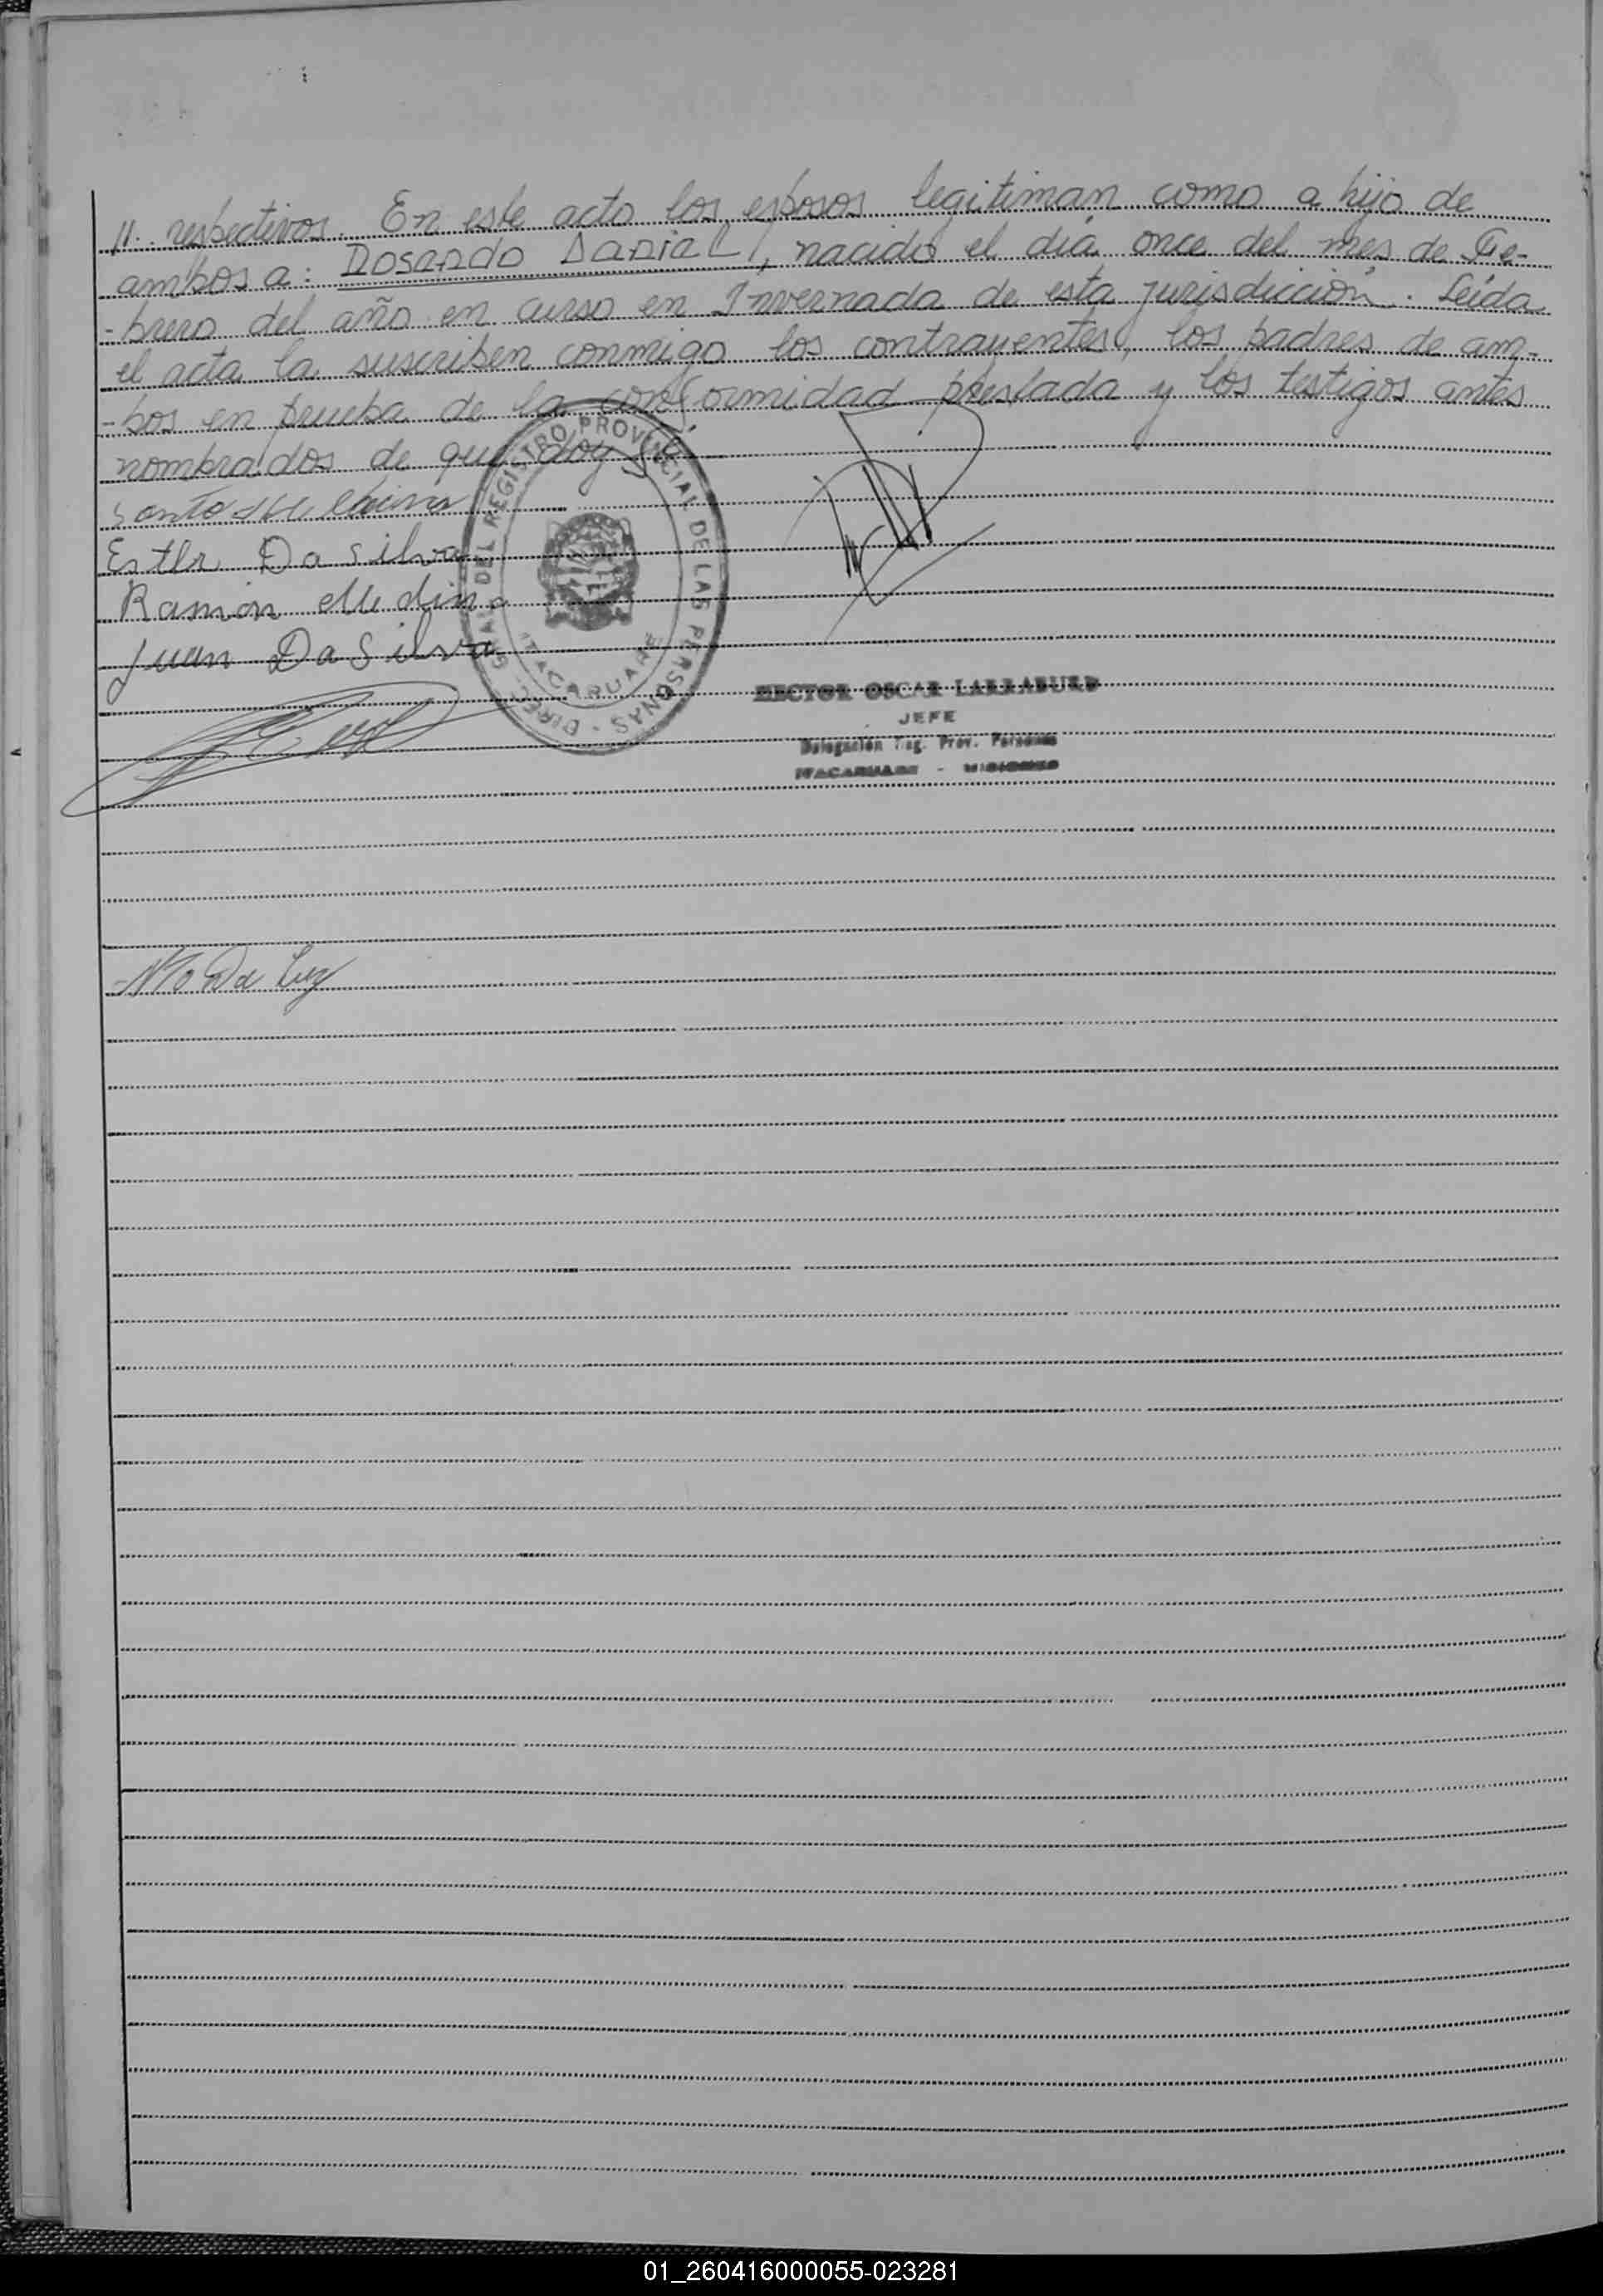 //.. respectivos. En este acto los esposos legitiman como a hijo de
ambos a: Rosando Daniel, nacido el día once del mes de Fe-
-brero del año en curso en Invernada de esta jurisdicción. Leída
el acta la suscriben conmigo los contrayentes, los padres de am-
-bos en prueba de la conformidad prestada y los testigos antes
nombrados de que doy fé.
Santo
Ester Da Silva
Ramón Medina
Juan Da Silva
DIREC. GRAL. DEL REGISTRO PROVINCIAL DE LAS PERSONAS -
ITACARUARE
HECTOR OSCAR LARRABURU
JEFE
Delegación Reg. Prov. Personas
ITACARUARE - MISIONES
Da Luz
01_260416000055-023281